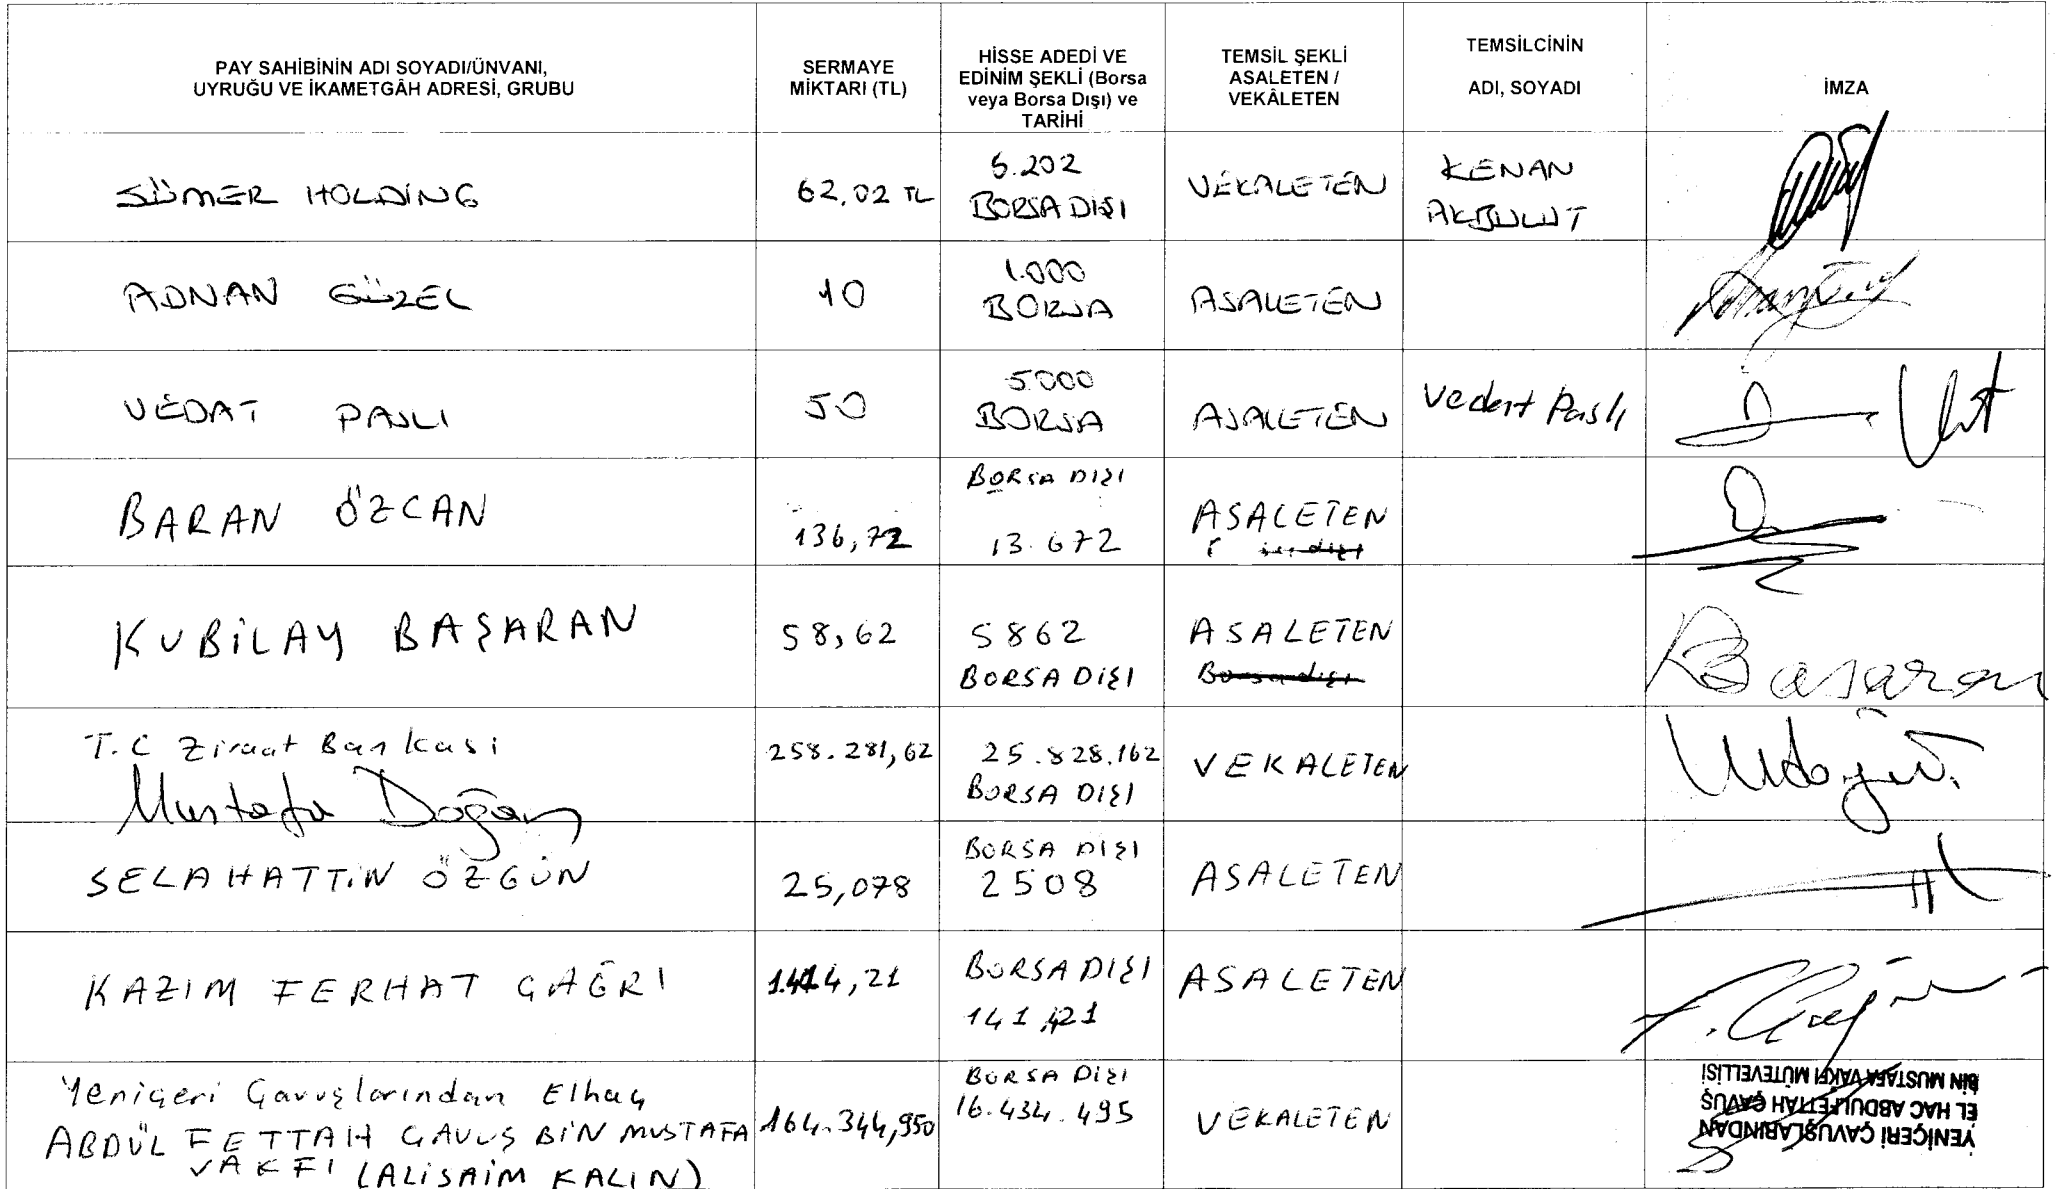 PAY SAHİBİNİN ADI SOYADI/ÜNVANI,
UYRUĞU VE İKAMETGÂH ADRESİ, GRUBU
SERMAYE
MİKTARI (TL)
HİSSE ADEDİ VE
EDİNİM ŞEKLİ (Borsa
veya Borsa Dışı) ve
TARİHİ
TEMSİL ŞEKLİ
ASALETEN /
VEKÂLETEN
TEMSİLCİNİN
ADI, SOYADI
İMZA
SÜMER HOLDİNG
62,02 TL
6.202
BORSA DIŞI
VEKALETEN
KENAN
AKBULUT
ADNAN GÜZEL
10
1.000
BORSA
ASALETEN
VEDAT PASLI
50
5.000
BORSA
ASALETEN
Vedat Paslı
BARAN ÖZCAN
136,72
BORSA DIŞI
13.672
ASALETEN
KUBİLAY BAŞARAN
58,62
5862
BORSA DIŞI
ASALETEN
Borsa dışı
Basaran
T.C Ziraat Bankasi
Mustafa Doğan
258.281,62
25.828.162
BORSA DIŞI
VEKALETEN
SELAHATTİN ÖZGÜN
25,078
BORSA DIŞI
2508
ASALETEN
KAZIM FERHAT ÇAĞRI
1.414,21
BORSA DIŞI
141,421
ASALETEN
Yeniçeri Çavuşlarından Elhaç
ABDÜL FETTAH ÇAVUŞ BİN MUSTAFA
VAKFI (ALİSAİM KALIN)
164.344,950
BORSA DIŞI
16.434.495
VEKALETEN
YENİÇERİ ÇAVUŞLARINDAN
EL HAC ABDULFETTAH ÇAVUŞ
BİN MUSTAFA VAKFI MÜTEVELLİSİ